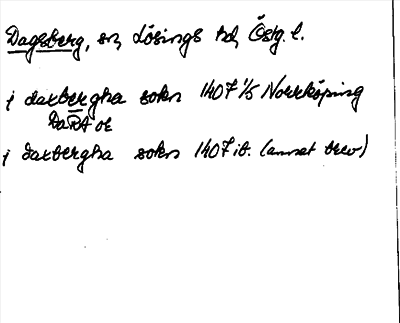 Dagsberg, sn, Lösings hd, Östg. l.
j daxbergha sokn 1407 1/5 Norrköping
DaRA or
j daxbergha sokn 1407 ib. (annat brev)